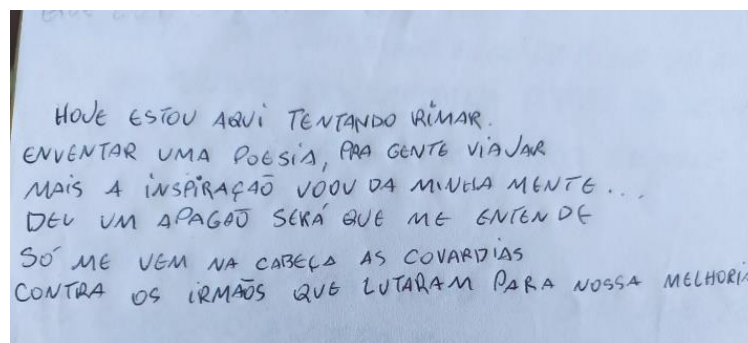 HOJE ESTOU AQUI TENTANDO RIMAR.
ENVENTAR UMA POESIA, PRA GENTE VIAJAR
MAIS A INSPIRAÇAÕ VOOU DA MINHA MENTE...
DEU UM APAGAÕ SERÁ QUE ME ENTENDE
SÓ ME VEM NA CABEÇA AS COVARDIAS
CONTRA OS IRMAÕS QUE LUTARAM PARA NOSSA MELHORIA